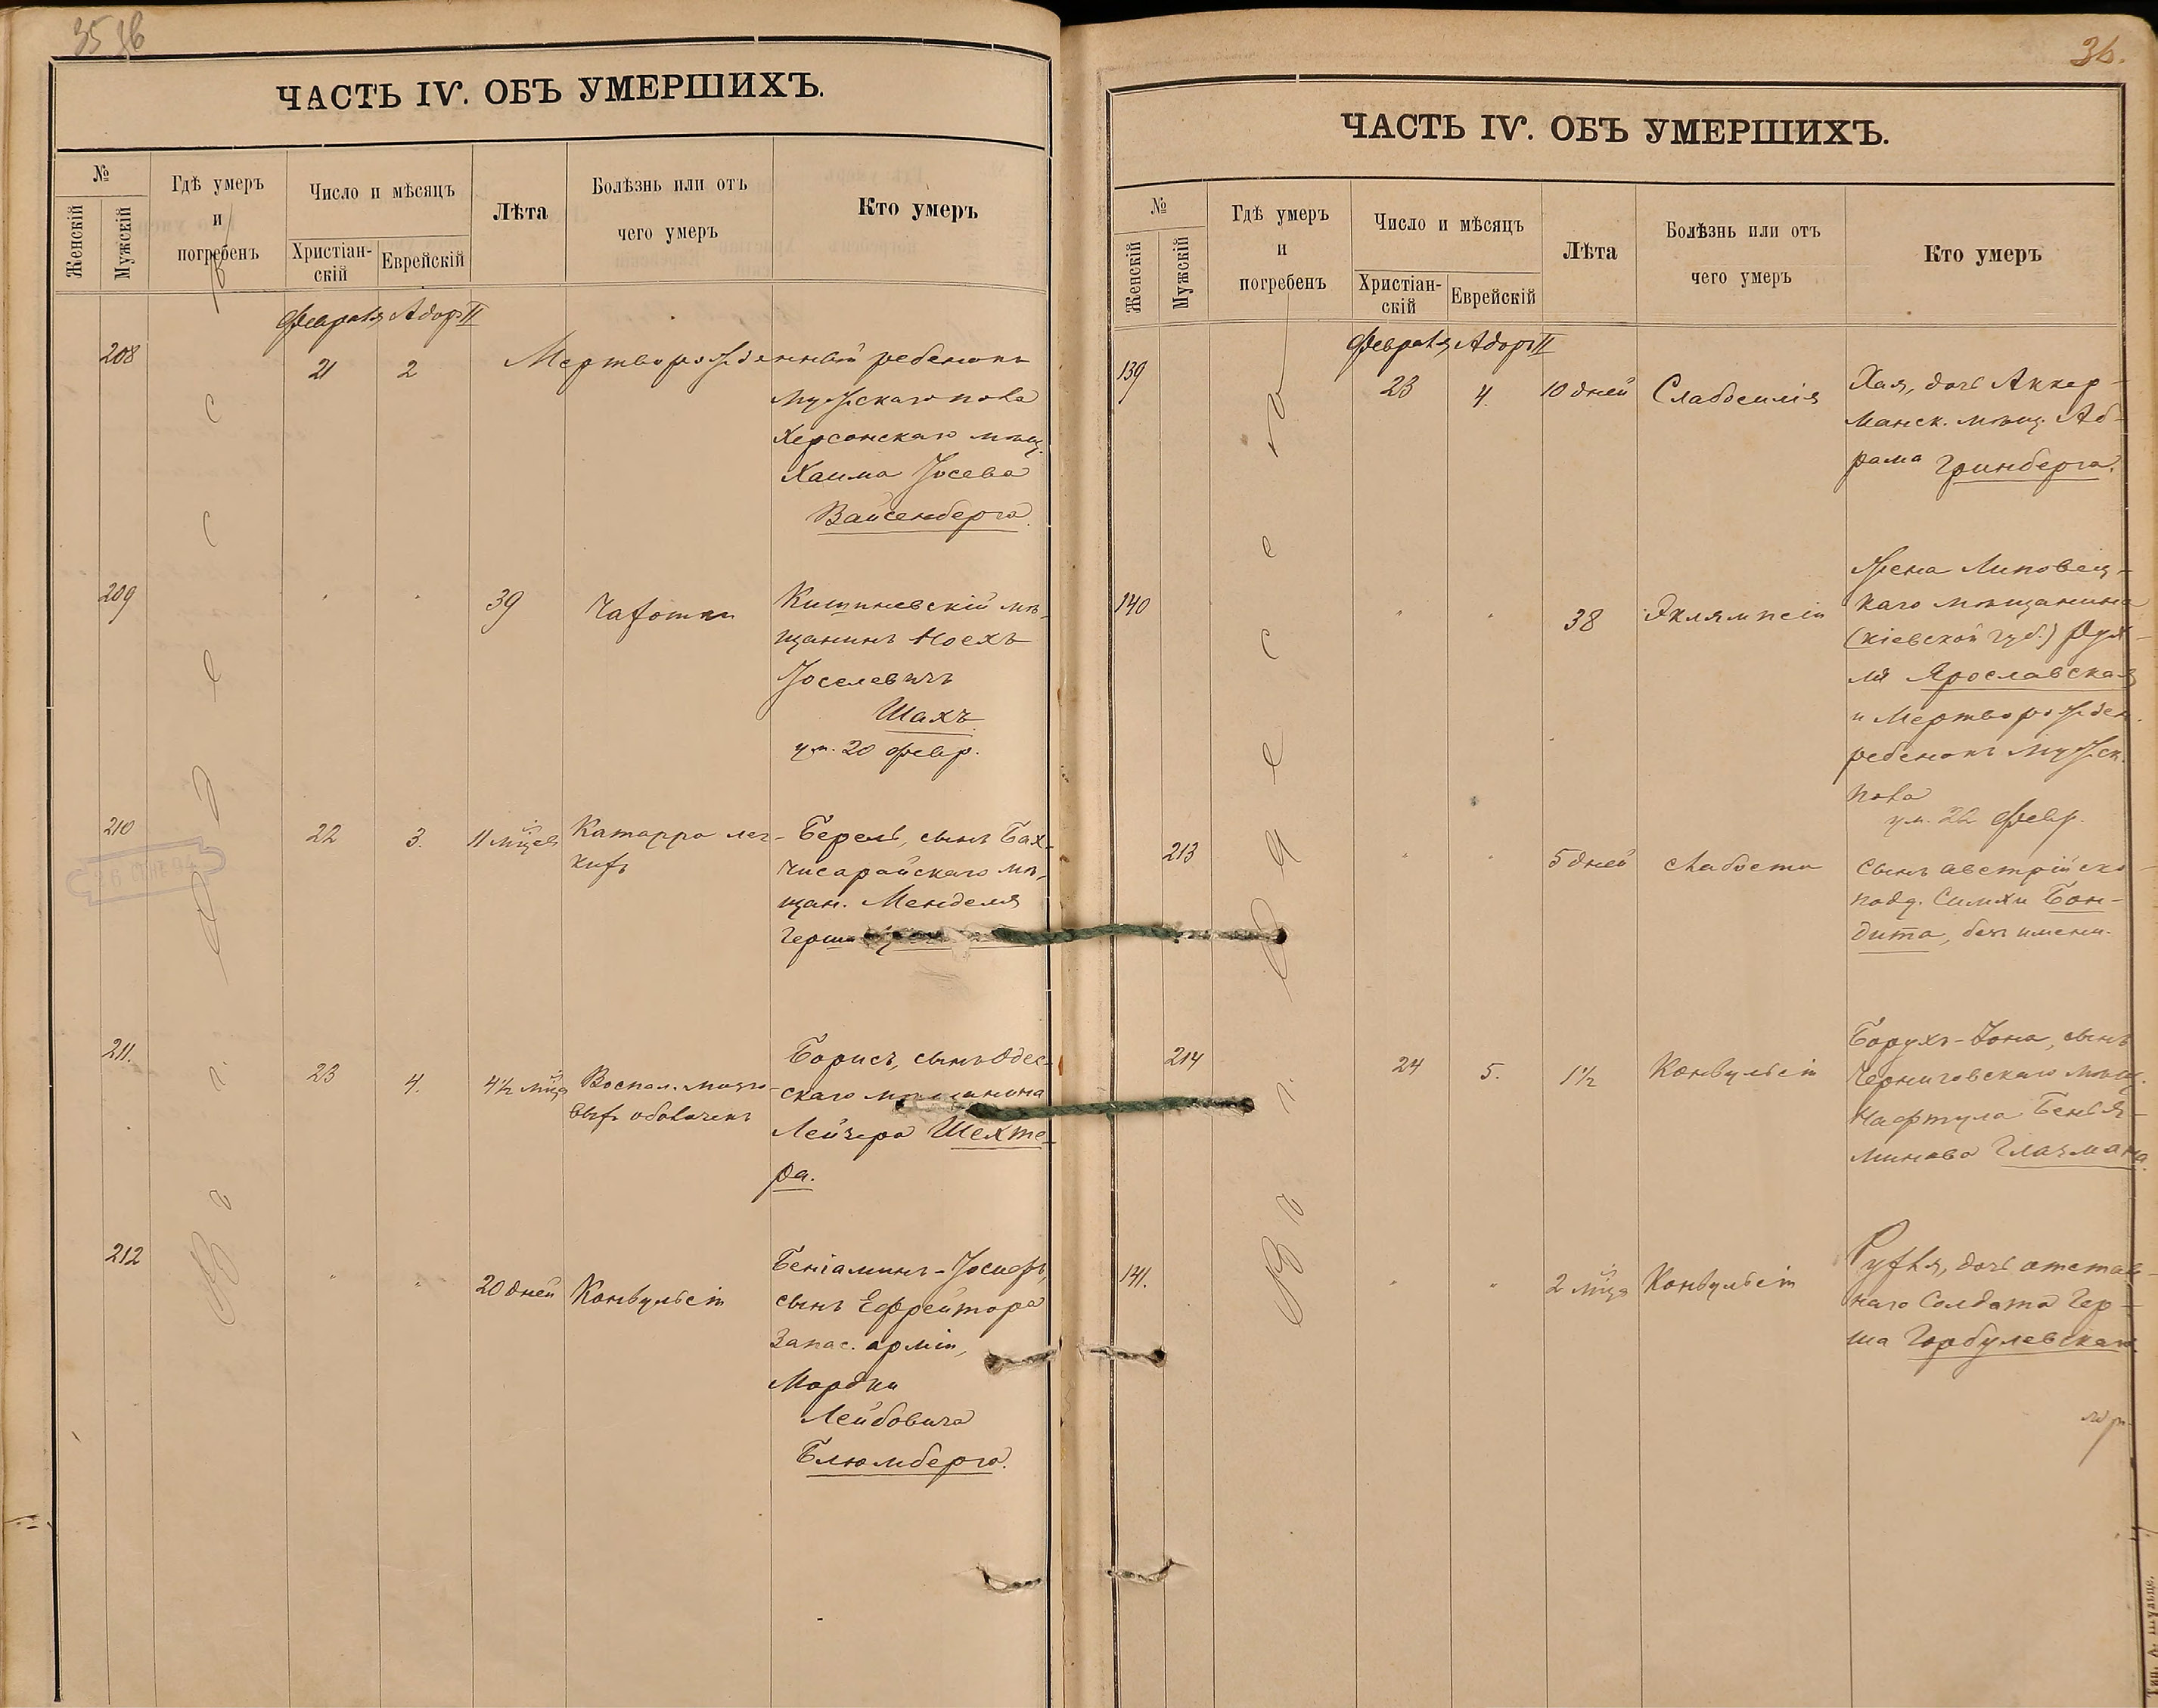 35 36
ЧАСТЬ IV. ОБЪ УМЕРШИХЪ.
№
Женскій
Мужскій
Гдѣ умеръ
и
погребенъ
Число и мѣсяцъ
Христіан-
скій
Еврейскій
Лѣта
Болѣзнь или отъ
чего умеръ
Кто умеръ
Февраля Адоръ II
208 21 2 Мертворожденный ребенокъ
мужскаго пола
Херсонскаго мѣщ.
Хаима Іосева
Вайсенберга.
209 " " 39 Чахотки Кишиневскій мѣ-
щанинъ Ноехъ
Іоселевичъ
Шахъ
ум. 20 февр.
210 22 3. 11 мѣсяцев Катарра лег- Берель, сынъ Бах-
кихъ чисарайскаго мѣ-
щан. Менделя
Герша
211. 23 4. 4½ мѣц Воспал. мозго- Борисъ, сынъ Одес-
выхъ оболочекъ скаго мѣщанина
Лейзера Шехте-
ра.
212 " " 20 дней Конвульсіи Беніаминъ-Іосифъ,
сынъ Ефрейтора
Запас. арміи,
Мордки
Лейбовича
Блюмберга.
Въ г. Одессѣ
36.
ЧАСТЬ IV. ОБЪ УМЕРШИХЪ.
№
Женскій
Мужскій
Гдѣ умеръ
и
погребенъ
Число и мѣсяцъ
Христіан-
скій
Еврейскій
Лѣта
Болѣзнь или отъ
чего умеръ
Кто умеръ
Февраля Адоръ II
139 23 4. 10 дней Слабосилія Хая, дочь Аккер-
манск. мѣщ. Аб-
рама Гринберга.
140 " " 38 Эклямпсіи Жена Липовец-
каго мѣщанина
(кіевской губ.) Рух-
ля Ярославская
и Мертворожден.
ребенокъ Мужск.
пола
ум. 22 Февр.
213 " " 5 дней слабости сынъ австрійско-
подд. Симхи Бон-
дита, безъ имени.
214 24 5. 1½ Конвульсіи Борухъ-Іона, сынъ
Черниговскаго мѣщ.
Нафтула Бенья-
минова Глазмана.
141. " " 2 мѣц Конвульсіи Рухля, дочь отстав-
наго Солдата Гер-
ша Горбулевскаго.